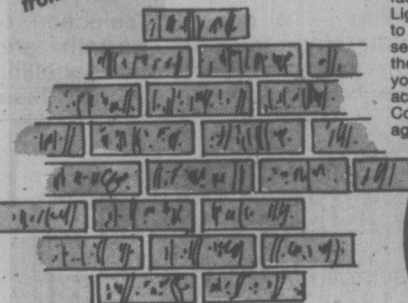 from
Lig
to
se
the
yo
ac
Co
ag